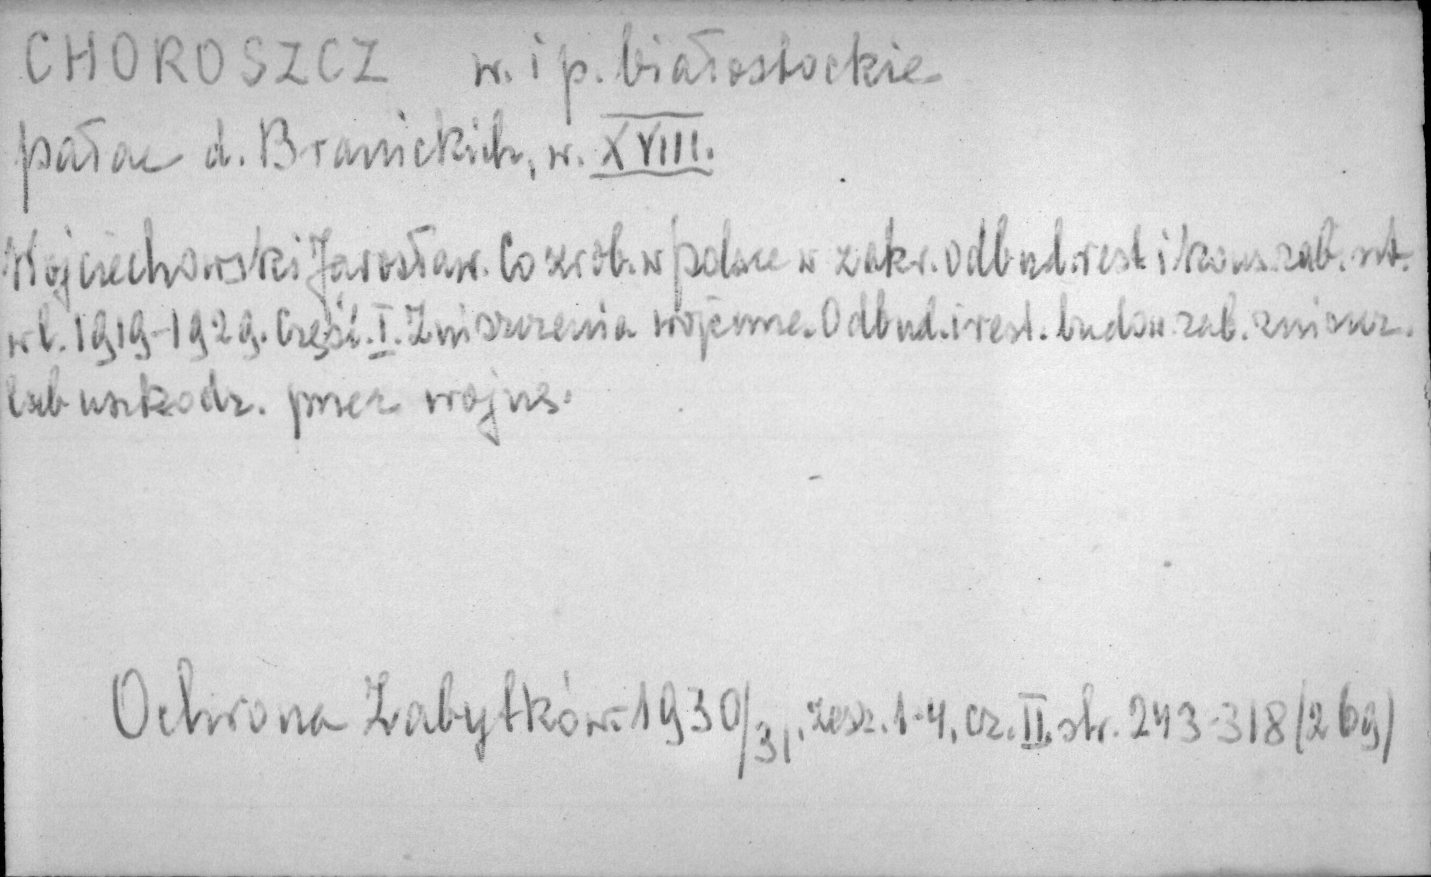 CHOROSZCZ w. i p. białostockie
pałac d. Branickich, w. XVIII.
Wojciechowski Jarosław. Co zrob. w Polsce w zakr. odbud. rest. i kons. zab. szt.
w l. 1919-1929. Część. I. Zniszczenia wojenne. Odbud. i rest. budow. zab. zniszcz.
lub uszkodz. przez wojnę.
Ochrona Zabytków. 1930/31, zesz. 1-4, cz. II. str. 243-318 (269)